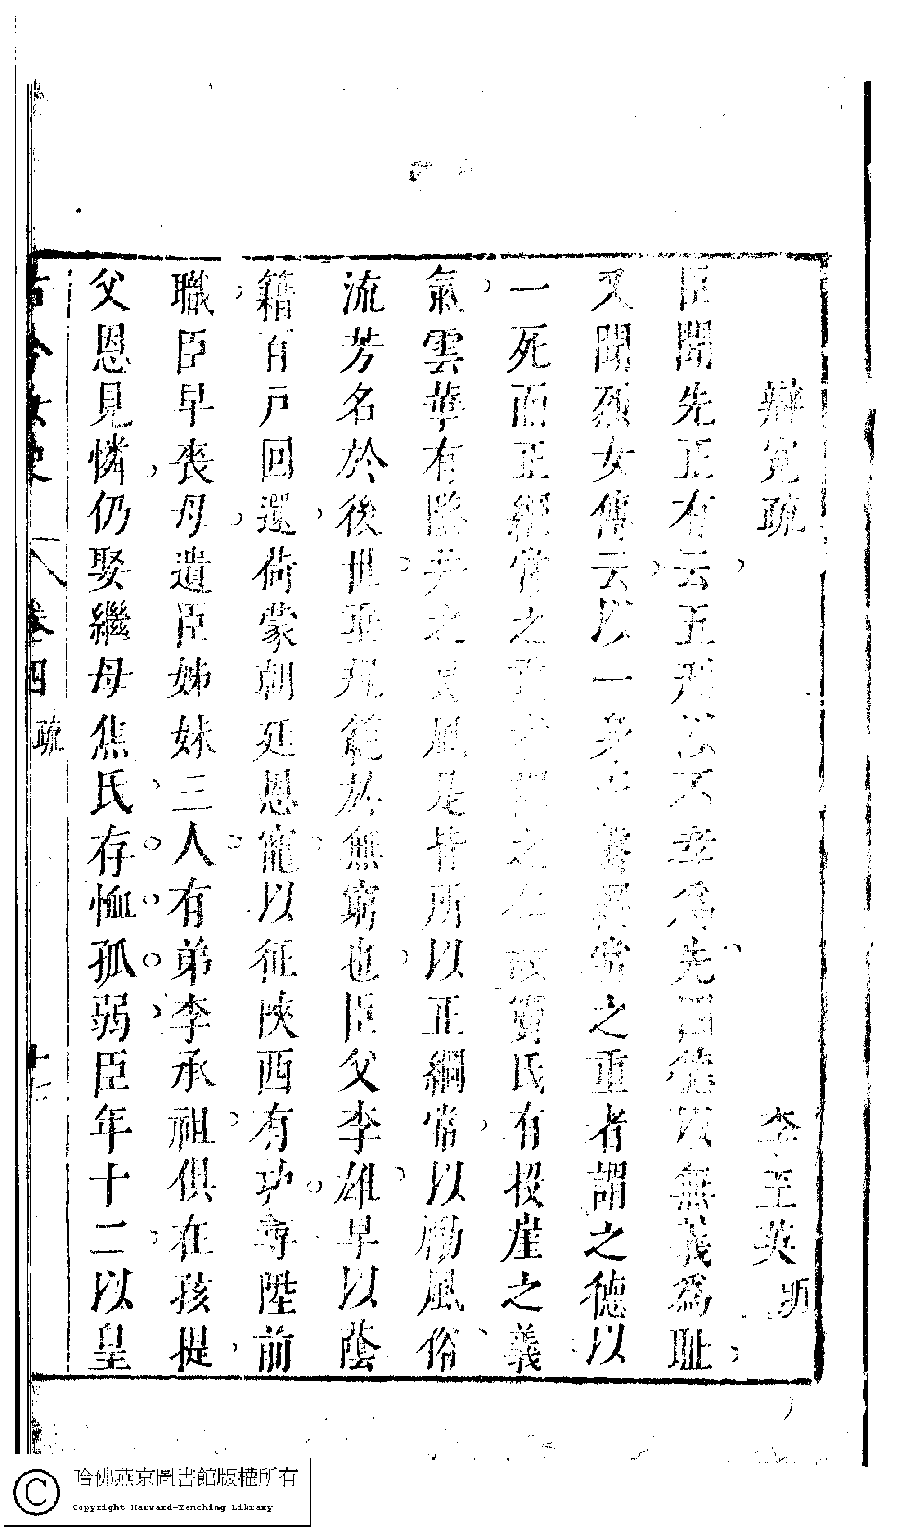 辯冤疏 李玉英 明
臣聞先正有云五刑以不孝爲先四德以無義爲耻
又聞烈女傳云以一身而繫綱常之重者謂之德以
一死而正綱常之重者謂之仁故竇氏有投崖之義
氣雲華有墜井之英風是皆所以正綱常以勵風俗
流芳名於後世垂規範於無窮也臣父李雄早以蔭
籍百戶回還荷蒙朝廷恩寵以征陝西有功尋陞前
職臣早喪母遺臣姊妹三人有弟李承祖俱在孩提
父恩見憐仍娶繼母焦氏存恤孤弱臣年十二以皇
古今女史 卷四 疏
哈佛燕京圖書館版權所有
Copyright Harvard-Yenching Library